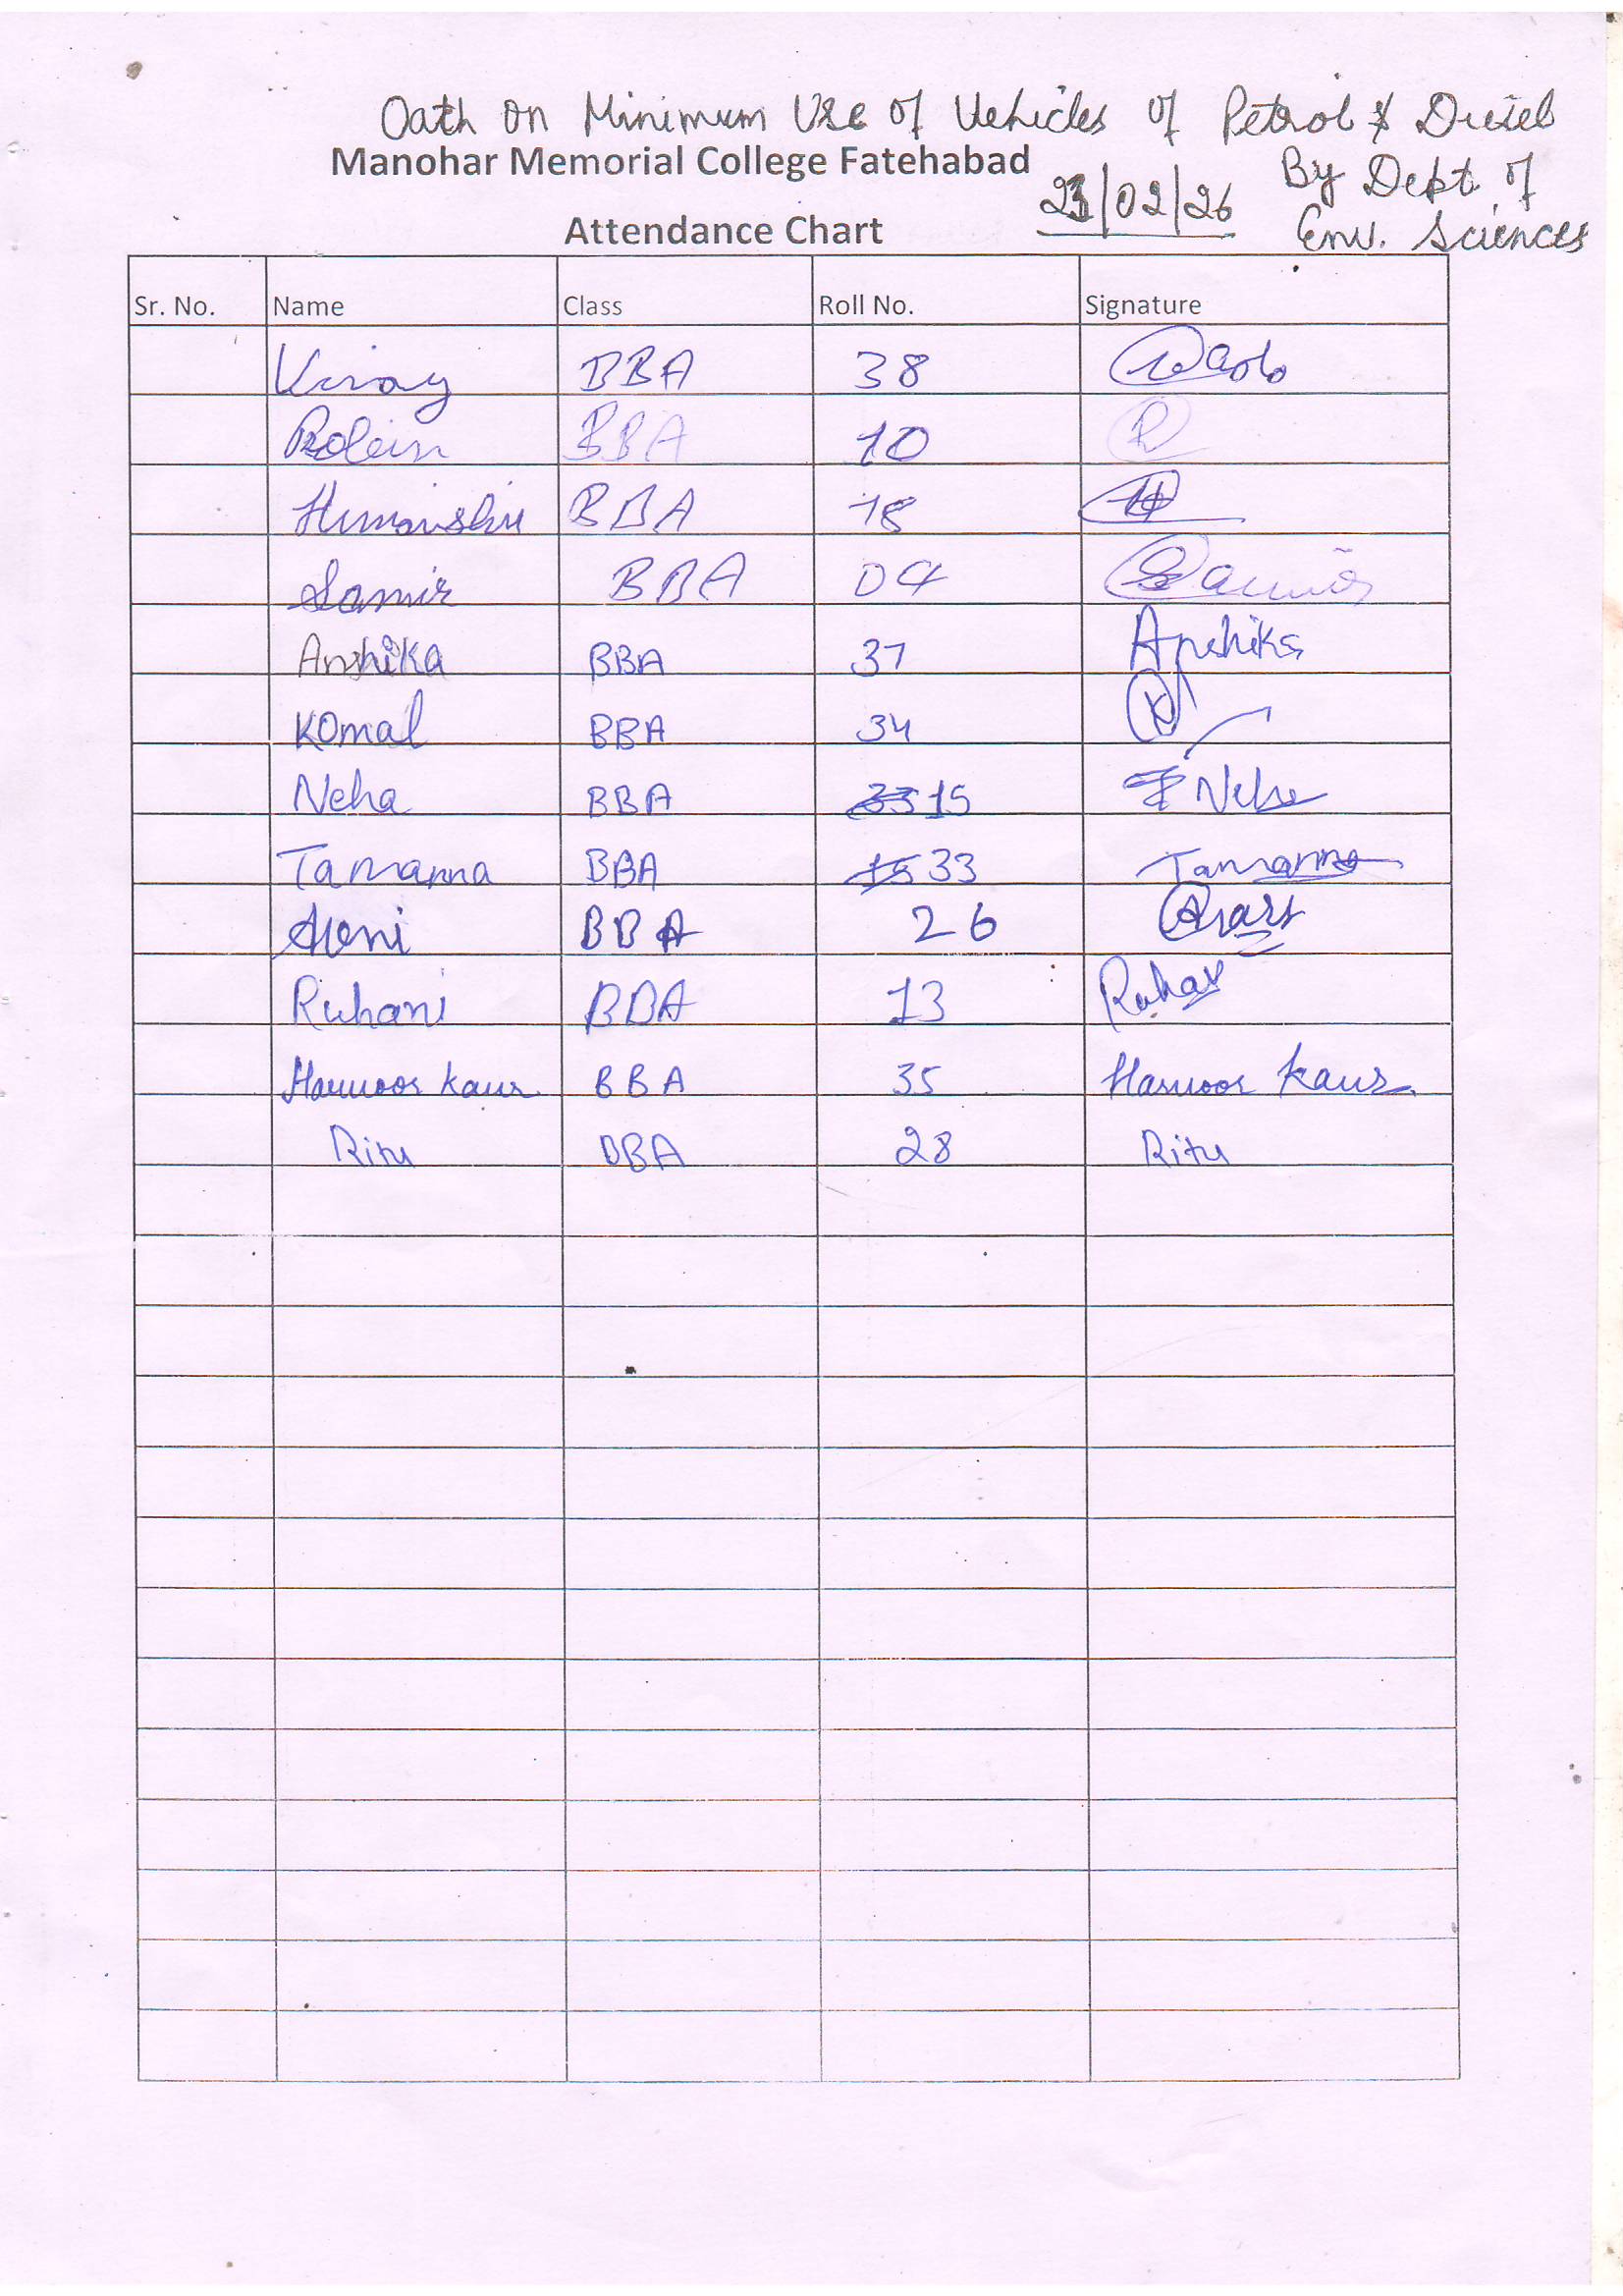 Oath on Minimum Use of Vehicles of Petrol & Diesel
Manohar Memorial College Fatehabad
By Dept. of
/02/26
Attendance Chart
Env. Sciences
Sr. No. Name Class Roll No. Signature
BBA 38
BBA 10 R
Himanshu BBA 18 H
Samir BBA 04 Samir
Anshika BBA 37 Anshika
Komal BBA 34 K
Neha BBA 15 Neha
Tamanna BBA 33 Tamanna
BBA 26
Ruhani BBA 13
Harnoor Kaur BBA 35 Harnoor Kaur
Ritu BBA 28 Ritu